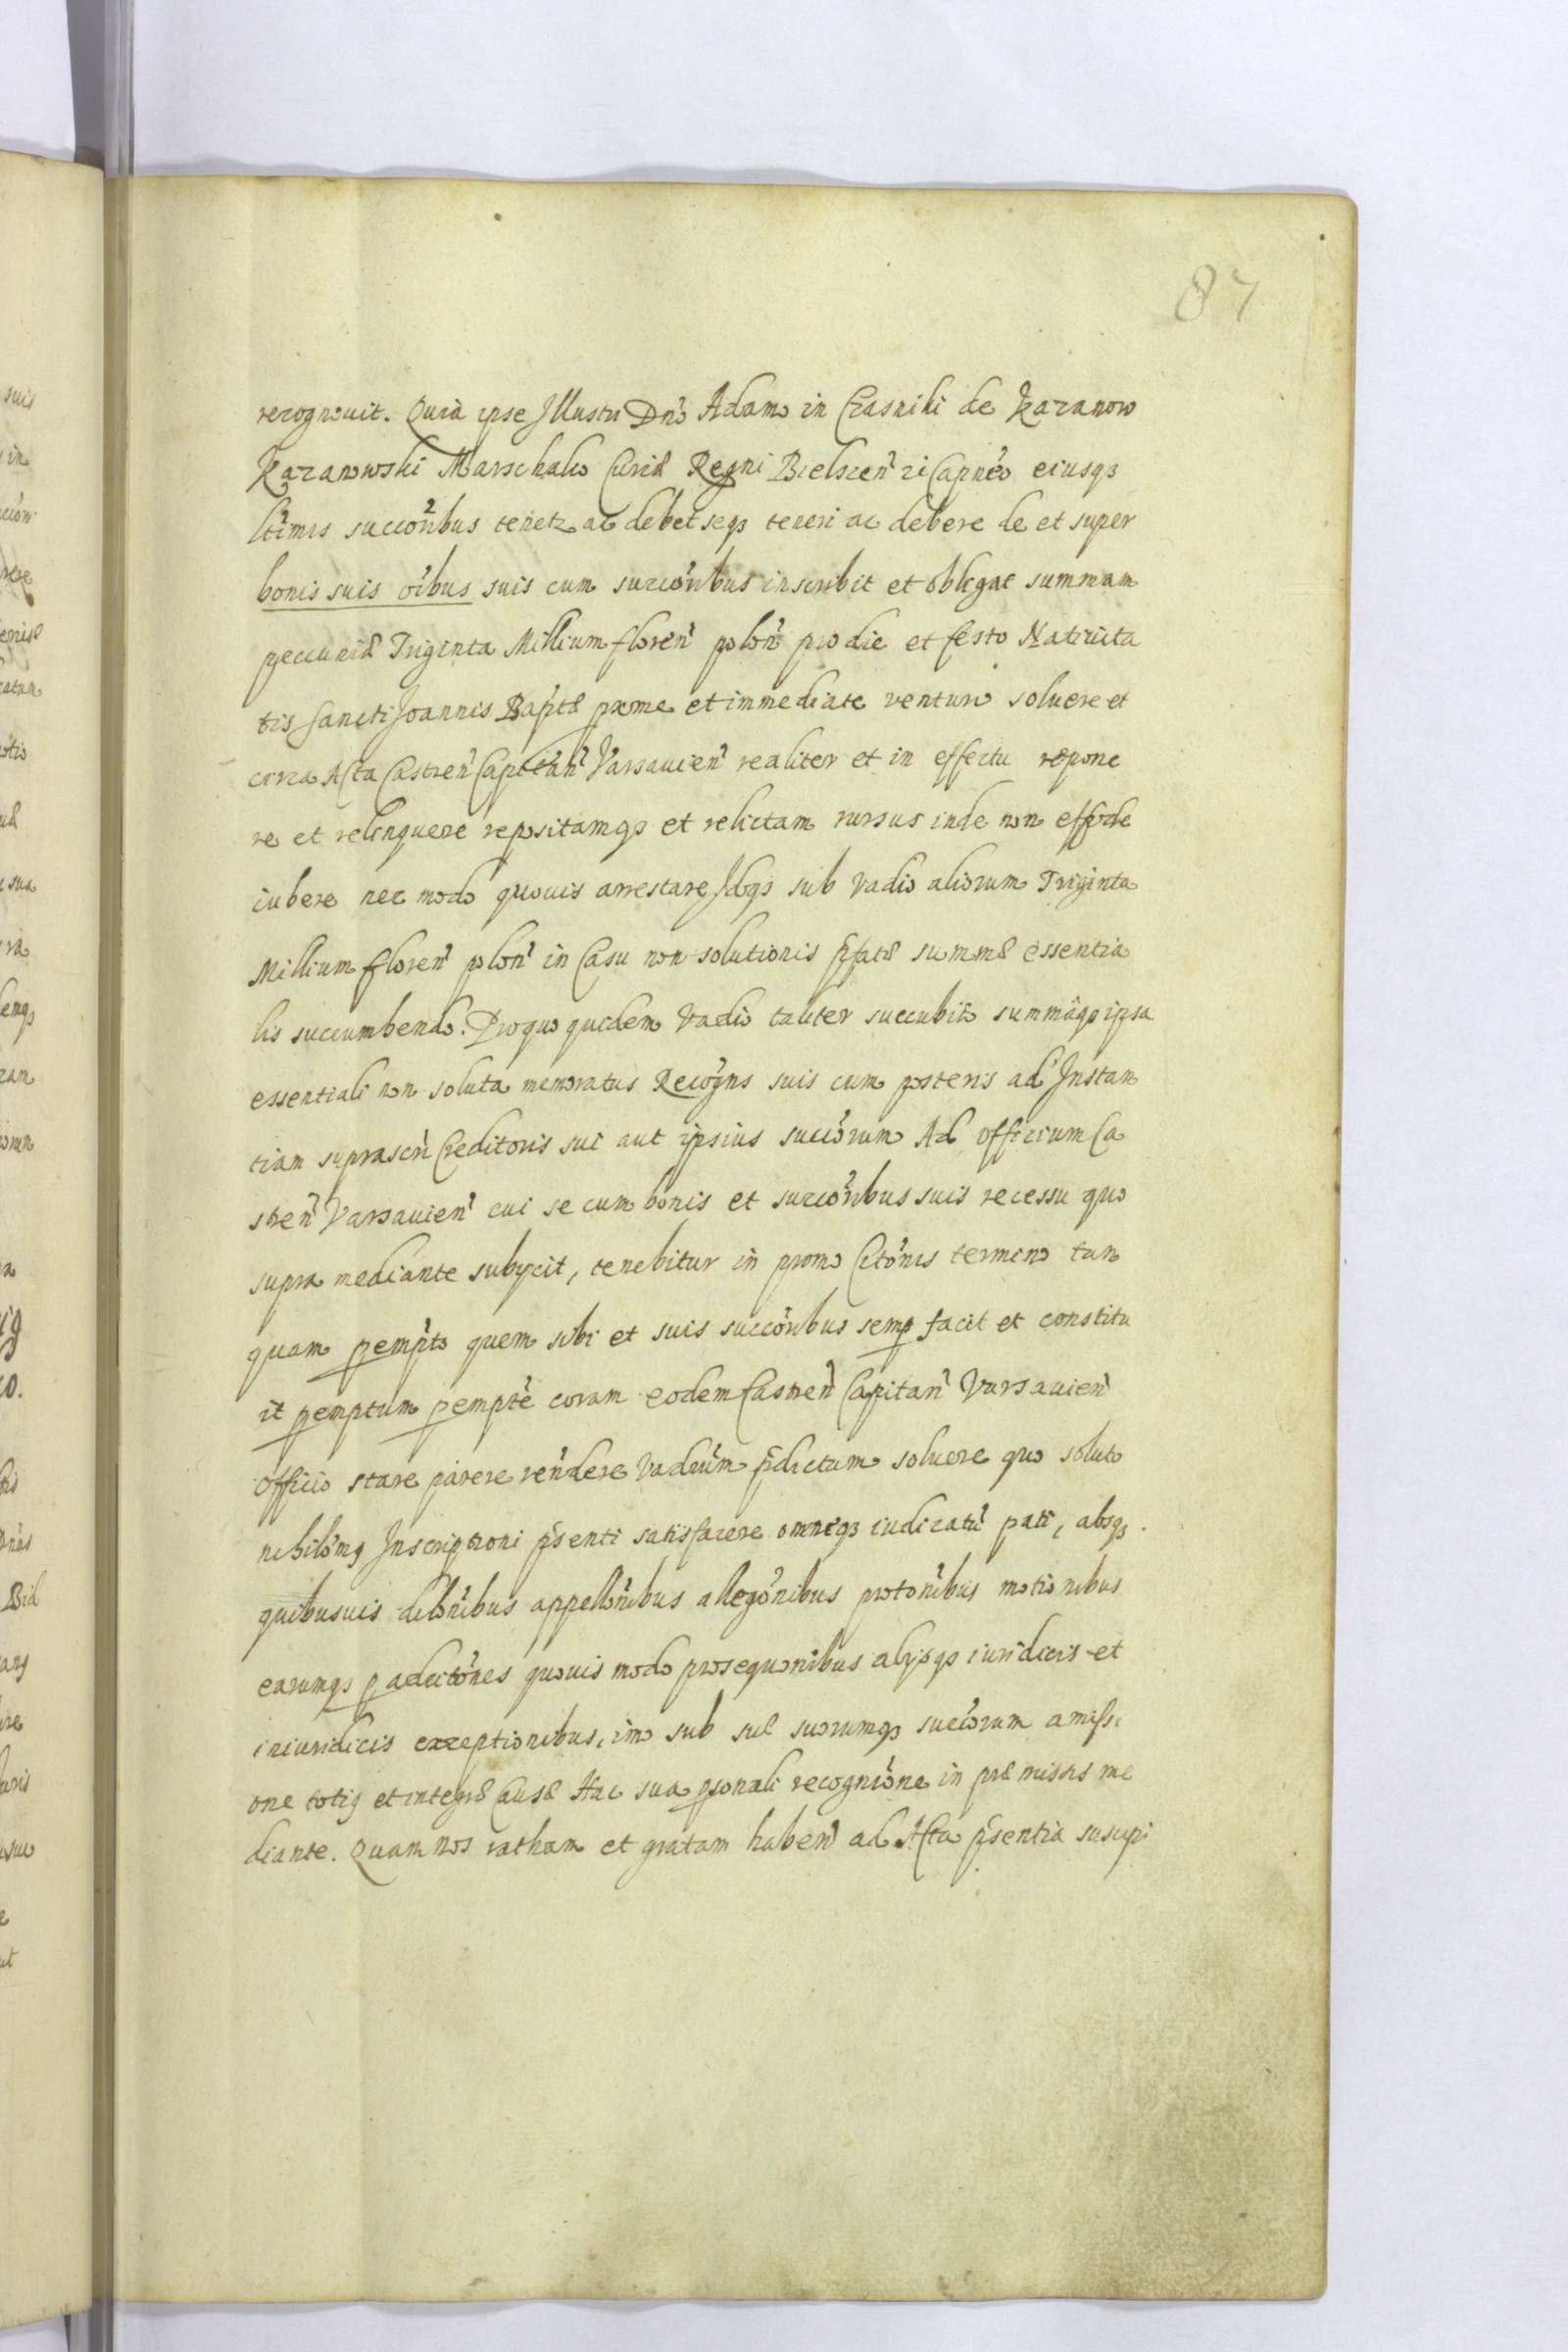 87
recognouit. Quia ipse Illustri Dnõ Adamo in Czasniki de Kazanow
Kazanowski Marschalco Curiæ Regni Bielscen̉ zc Capnẻo eiusqз
ltimis succoribus tenetz ac debet seqз teneri ac debere de et super
bonis suis oibus suis cum succoribus inscribit et obligat summam
pecuniæ Triginta Millium floren̉ polon̉ pro die et festo Natiuita
tis Sancti Joannis Baptæ pxme et immediate venturo soluere et
circa Acta Castren̉ Capitan̉ Varsauien̉ realiter et in effectu repone
re et relinquere repositamqз et relictam rursus inde non effode
iubere nec modo quouis arrestare Idqз sub vadio aliorum Triginta
Millium floren̉ polon̉ in Casu non solutionis pfatæ summæ essentia
lis succumbendo. Pro quo quidem Vadio taliter succubito summaqз ipsa
essentiali non soluta memoratus Recogns suis cum posteris ad Instan
tiam suprascri Creditoris sui aut ipsius succorum Ad officium Ca
stren̉ Varsauien̉ cui se cum bonis et succoribus suis recessu quo
supra mediante subycit, tenebitur in promo Citonis termino tan
quam pempto quem sibi et suis succoribus semp facit et constitu
it pemptum pempte coram eodem Castren̉ Capitan̉ Varsauien̉
officio stare parere rendere Vadium pdictum soluere quo soluto
nihilomq Inscriptioni psenti satisfacere omneqз iudicatu pati, absqз
quibusuis dilonibus appellonibus allegonibus protonibus motionibus
earumqз padictones quouis modo prosequonibus alysqз iuridicis et
iniuridicis exceptionibus, imo sub suæ suorumqз succorum amissi
one totiq et integræ Causæ Hac sua psonali recognione in præmissis me
diante. Quam nos ratham et gratam haben̉ ad Acta psentia suscipi